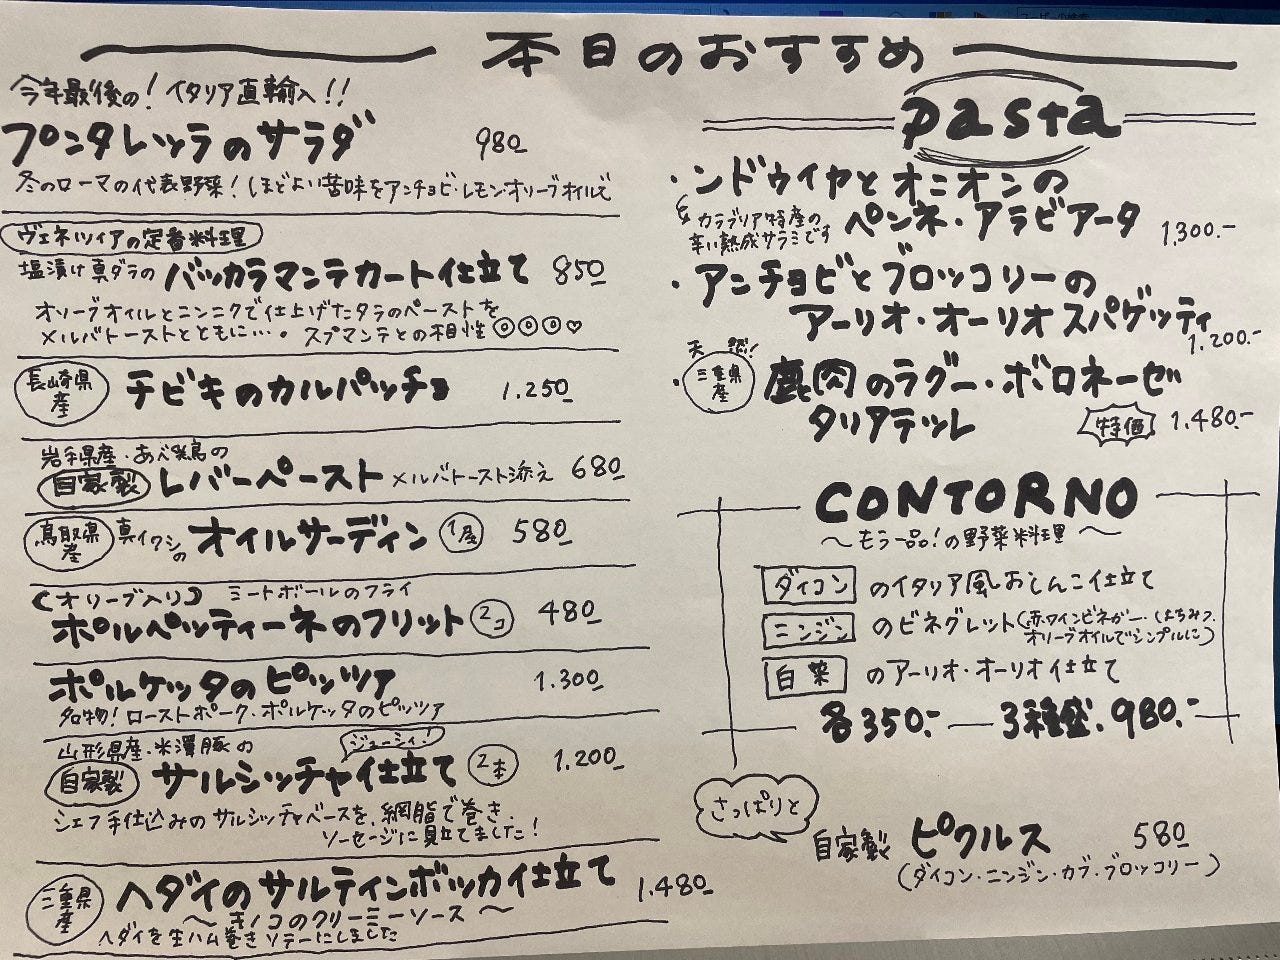 本日のおすすめ
今年最後の！イタリア直輸入！！
プンタレッラのサラダ 980
冬のローマの代表野菜！ほどよい苦味をアンチョビ・レモン・オリーブオイルで
ヴェネツィアの定番料理
塩漬け真ダラの バッカラマンテカート仕立て 850
オリーブオイルとニンニクで仕上げたタラのペーストを
メルバトーストとともに…。スプマンテとの相性◎◎◎♡
長崎県産 チビキのカルパッチョ 1.250
岩手県産・あべ鶏の
自家製 レバーペースト メルバトースト添え 680
鳥取県産 真イワシの オイルサーディン 1尾 580
(オリーブ入り) ミートボールのフライ
ポルペッティーネのフリット 2コ 480
ポルケッタのピッツァ 1.300
名物！ローストポーク・ポルケッタのピッツァ
山形県産・米澤豚の ジューシィ！
自家製 サルシッチャ仕立て 2本 1.200
シェフ手仕込みのサルシッチャベースを、網脂で巻き、
ソーセージに見立てました！
三重県産 ヘダイのサルティンボッカ仕立て 1.480
〜キノコのクリーミーソース〜
ヘダイを生ハム巻きソテーにしました
pasta
・ンドゥイヤとオニオンの
ペンネ・アラビアータ 1,300.-
カラブリア特産の
辛い熟成サラミです
・アンチョビとブロッコリーの
アーリオ・オーリオ スパゲッティ
1.200.-
天然！
・三重県産 鹿肉のラグー・ボロネーゼ
タリアテッレ 特価 1.480.-
CONTORNO
〜もう一品！の野菜料理〜
ダイコン のイタリア風おしんこ仕立て
ニンジン のビネグレット(赤ワインビネガー・はちみつ、
オリーブオイルでシンプルに)
白菜 のアーリオ・オーリオ仕立て
各350.- — 3種盛.980.-
さっぱりと
自家製 ピクルス 580
(ダイコン・ニンジン・カブ・ブロッコリー)